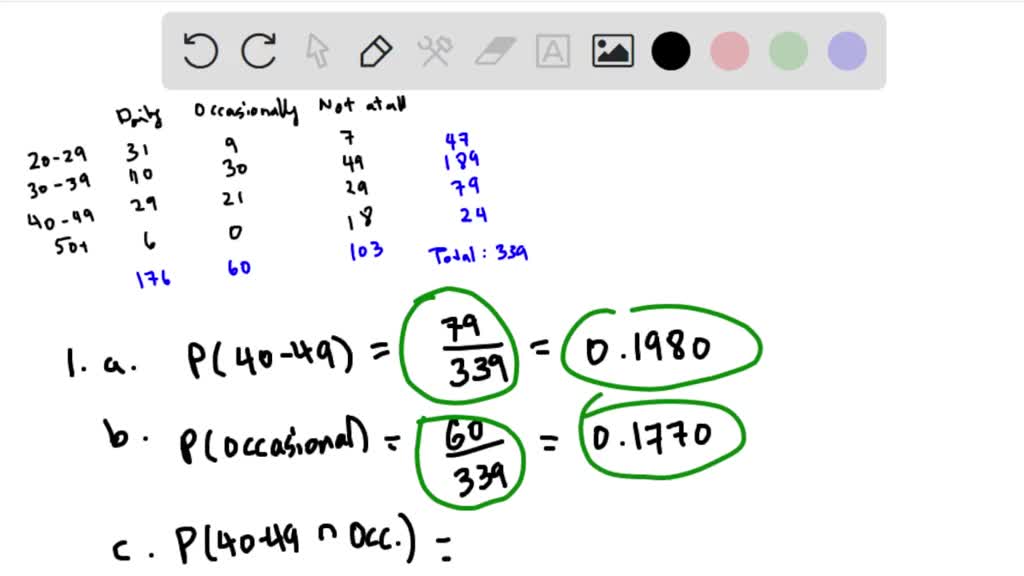 A
Daily Occasionally Not at all
20-29 31 9 7 47
30-39 110 30 49 189
40-49 29 21 29 79
50+ 6 0 18 24
176 60 103 Total: 339
1. a. P(40-49) = 79/339 = 0.1980
b. P(occasional) = 60/339 = 0.1770
c. P(40-49 ∩ Occ.) =